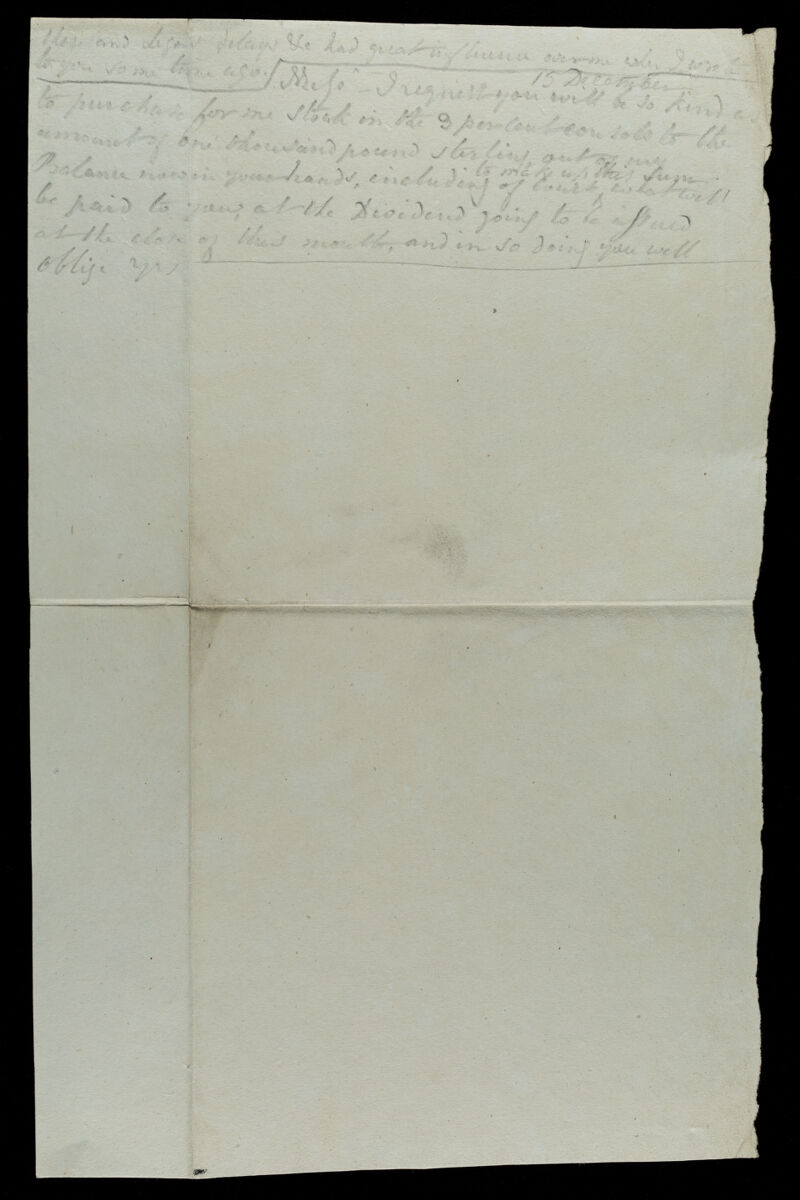 and legal delays &c had great influence over me when I wrote
to you some time ago
15 December
Mess<sup>rs</sup> - I request you will be so kind as
to purchase for me stock in the 3 per cent consols to the
amount of one thousand pound sterling out of my
to make up this sum
Balance now in your hands, including of course, what will
be paid to you, at the Dividend going to be issued
at the close of this month, and in so doing you will
oblige yrs